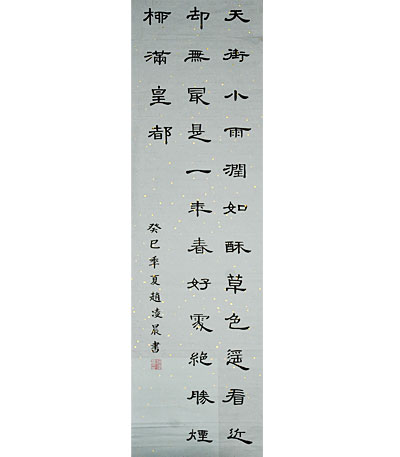 天街小雨潤如酥草色遥看近
却無冣是一年春好處絶勝煙
柳滿皇都
癸巳年夏趙凌晨書